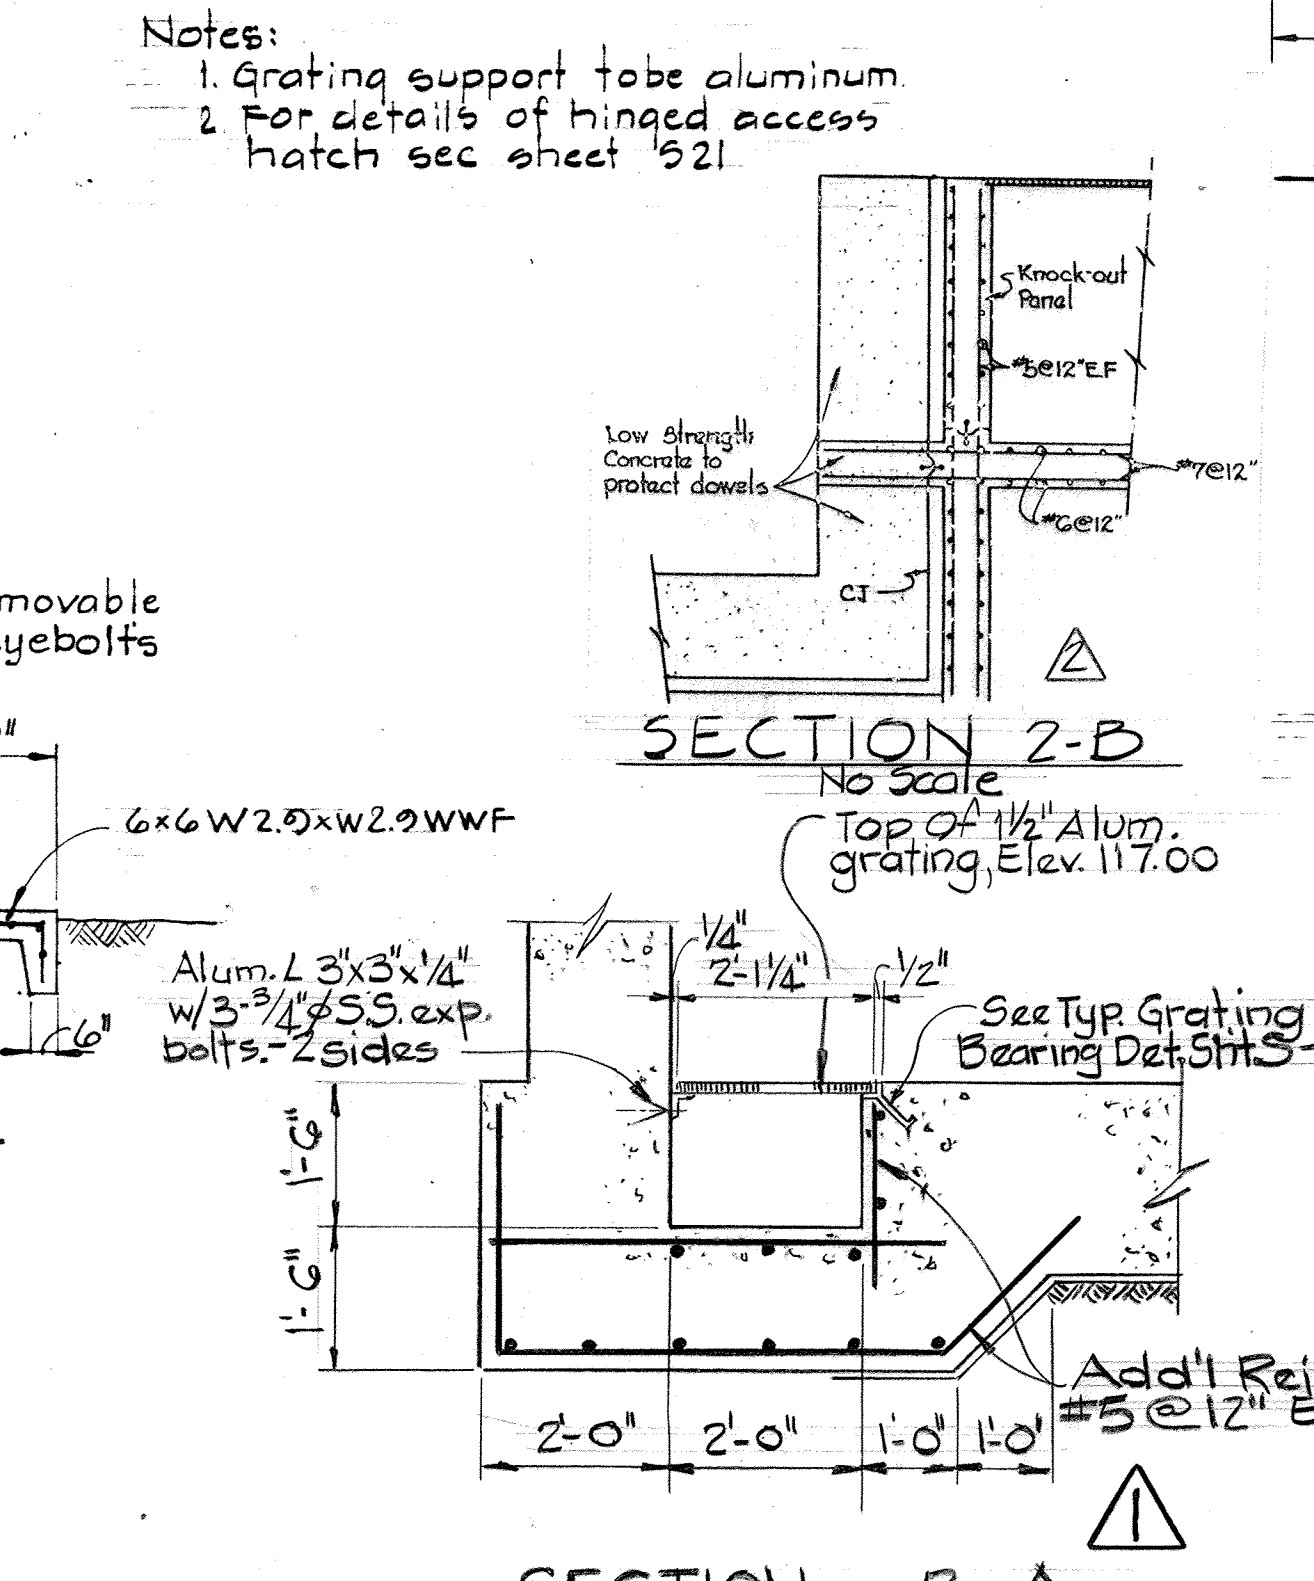 Notes:
1. Grating support tobe aluminum.
2. For details of hinged access
hatch see sheet S21
Knock-out
Panel
#5@12" E.F
Low Strength
Concrete to
protect dowels
#7@12"
#6@12"
CJ
2
movable
yebolts
SECTION 2-B
No Scale
6×6 W2.9×W2.9 WWF
Top Of 1½" Alum.
grating, Elev. 117.00
Alum. L 3"x3"x¼"
w/3-¾"ϕ S.S. exp.
bolts.-2 sides
6"
¼"
2'-1¼"
½"
See Typ. Grating
Bearing Det. Sht S-
1'-6"
1'-6"
Add'l Rei
#5 @ 12" E
2'-0"
2'-0"
1'-0"
1'-0"
1
SECTION